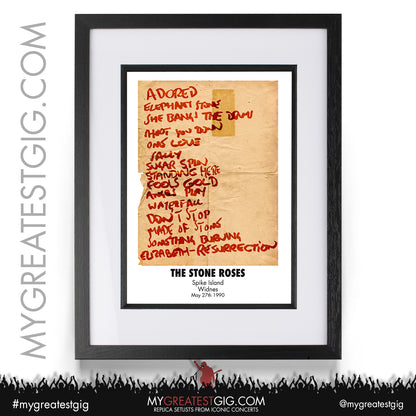 MYGREATESTGIG.COM
ADORED
ELEPHANT STONE
SHE BANGS THE DRUMS
SHOOT YOU DOWN
ONE LOVE
SALLY
SUGAR SPUN
STANDING HERE
FOOLS GOLD
WATERFALL
DON'T STOP
MADE OF STONE
SOMETHING BURNING
ELIZABETH - RESURRECTION
THE STONE ROSES
Spike Island
Widnes
May 27th 1990
#mygreatestgig
MYGREATESTGIG.COM
REPLICA SETLISTS FROM ICONIC CONCERTS
@mygreatestgig